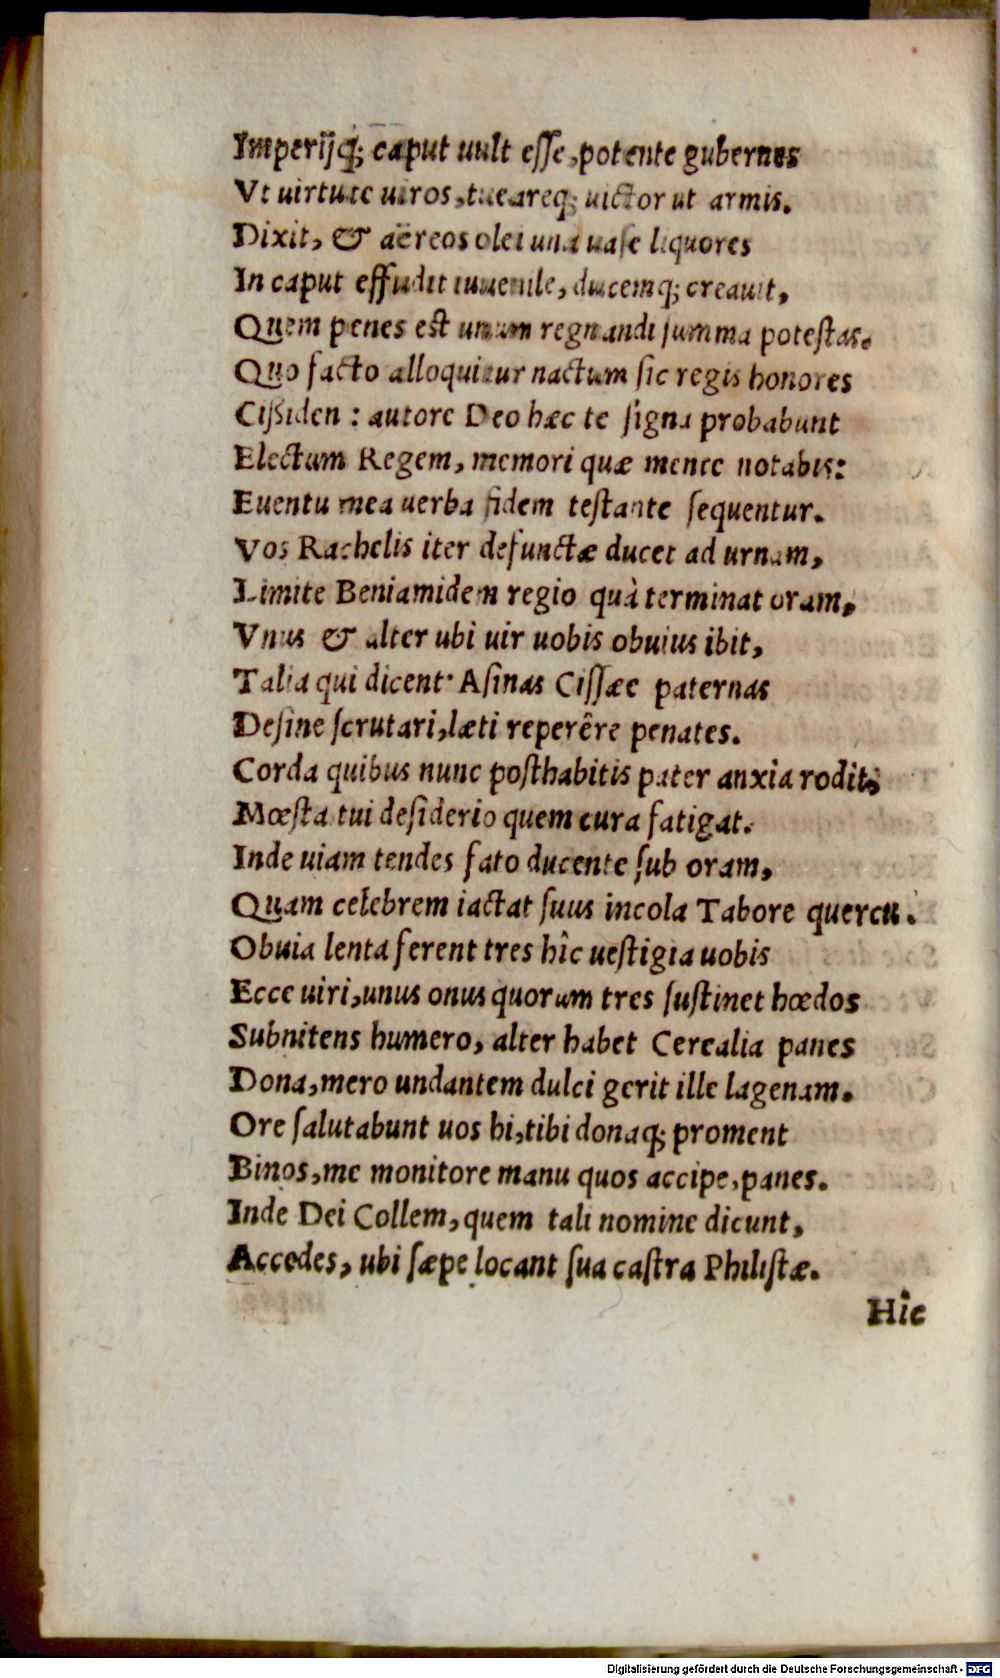 Imperijq; caput uult esse, potente gubernes
Vt uirtute uiros, tueareq; uictor ut armis.
Dixit, & aëreos olei una uase liquores
In caput effudit iuuenile, ducemq; creauit,
Quem penes est unum regnandi summa potestas.
Quo facto alloquitur nactum sic regis honores
Cißiden : autore Deo hæc te signa probabunt
Electum Regem, memori quæ mente notabis:
Euentu mea uerba fidem testante sequentur.
Vos Rachelis iter defunctæ ducet ad urnam,
Limite Beniamiden regio quà terminat oram,
Vnus & alter ubi uir uobis obuius ibit,
Talia qui dicent· Asinas Cissæe paternas
Desine scrutari, læti reperêre penates.
Corda quibus nunc posthabitis pater anxia rodit,
Mœsta tui desiderio quem cura fatigat.
Inde uiam tendes fato ducente sub oram,
Quam celebrem iactat suus incola Tabore quercu.
Obuia lenta ferent tres hîc uestigia uobis
Ecce uiri, unus onus quorum tres sustinet hœdos
Subnitens humero, alter habet Cerealia panes
Dona, mero undantem dulci gerit ille lagenam.
Ore salutabunt uos hi, tibi donaq; proment
Binos, me monitore manu quos accipe, panes.
Inde Dei Collem, quem tali nomine dicunt,
Accedes, ubi sæpe locant sua castra Philistæ.
Hîc
Digitalisierung gefördert durch die Deutsche Forschungsgemeinschaft - DFG